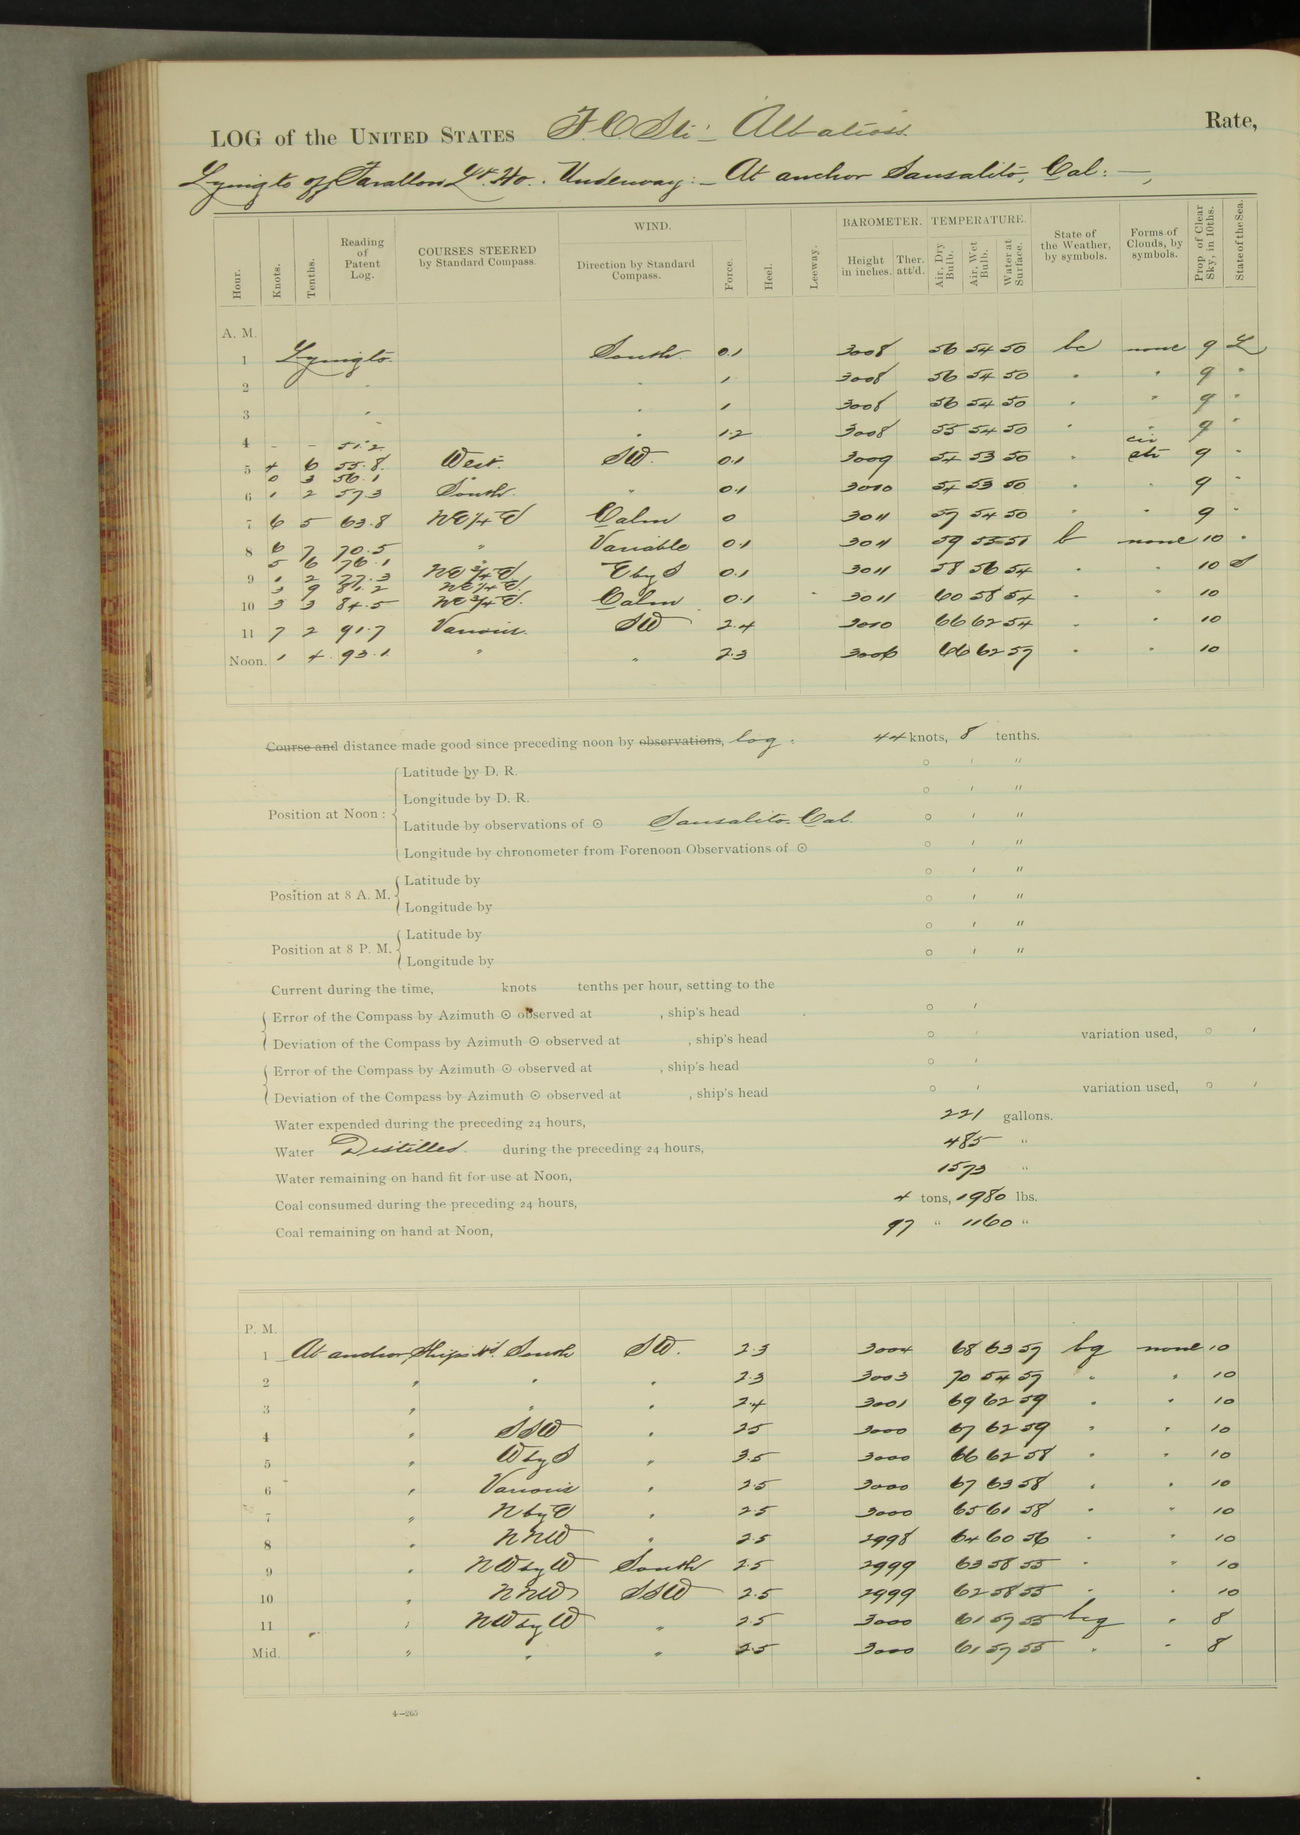 LOG of the UNITED STATES F. C. Str: Albatross. Rate,
Lying to off Farallon Lt. Ho. Underway: At anchor Sausalito, Cal:
Hour. Knots. Tenths. Reading of Patent Log. COURSES STEERED by Standard Compass. WIND. Direction by Standard Compass. Force. Heel. Leeway. BAROMETER. Height in inches. Ther. att'd. TEMPERATURE. Air, Dry Bulb. Air, Wet Bulb. Water at Surface. State of the Weather, by symbols. Forms of Clouds, by symbols. Prop. of Clear Sky, in 10ths. State of the Sea.
A. M.
1 Lying to South 0.1 3008 56 54 50 bc none 9 L
2 " " 1 3008 56 54 50 " " 9 "
3 " " 1 3008 56 54 50 " " 9 "
4 - - 51.2 " 1.2 3008 55 54 50 " " 9 "
5 4 6 55.8 West. SW. 0.1 3009 54 53 50 " cir str 9 "
0 3 56.1 "
6 1 2 57.3 South. " 0.1 3010 54 53 50 " " 9 "
7 6 5 63.8 NE 1/4 E Calm 0 3011 57 54 50 " " 9 "
8 6 7 70.5 " Variable 0.1 3011 59 55 51 b none 10 "
5 6 76.1 "
9 1 2 77.3 NE 3/4 E E by S 0.1 3011 58 56 54 " " 10 S
3 9 81.2 NE 1/4 E.
10 3 3 84.5 NE 3/4 E. Calm 0.1 3011 60 58 54 " " 10
11 7 2 91.7 Various. SW 2.4 3010 66 62 54 " " 10
Noon. 1 4 93.1 " " 2.3 3006 66 62 57 " " 10
Course and distance made good since preceding noon by observations, log. 44 knots, 8 tenths.
Position at Noon:
Latitude by D. R. ° ' "
Longitude by D. R. ° ' "
Latitude by observations of ☉ Sausalito. Cal. ° ' "
Longitude by chronometer from Forenoon Observations of ☉ ° ' "
Position at 8 A. M.
Latitude by ° ' "
Longitude by ° ' "
Position at 8 P. M.
Latitude by ° ' "
Longitude by ° ' "
Current during the time, knots tenths per hour, setting to the
Error of the Compass by Azimuth ☉ observed at , ship's head ° '
Deviation of the Compass by Azimuth ☉ observed at , ship's head ° ' variation used, ° '
Error of the Compass by Azimuth ☉ observed at , ship's head ° '
Deviation of the Compass by Azimuth ☉ observed at , ship's head ° ' variation used, ° '
Water expended during the preceding 24 hours, 221 gallons.
Water Distilled. during the preceding 24 hours, 485 "
Water remaining on hand fit for use at Noon, 1573 "
Coal consumed during the preceding 24 hours, 4 tons, 1980 lbs.
Coal remaining on hand at Noon, 97 " 1160 "
P. M.
1 At anchor Ships Hd. South SW. 2.3 3004 68 63 57 bq none 10
2 " " " 2.3 3003 70 54 57 " " 10
3 " " " 2.4 3001 69 62 59 " " 10
4 " SSW " 2.5 3000 67 62 59 " " 10
5 " W by S " 3.5 3000 66 62 58 " " 10
6 " Various " 2.5 3000 67 63 58 " " 10
7 " N by E " 2.5 3000 65 61 58 " " 10
8 " NNW " 2.5 2998 64 60 56 " " 10
9 " NW by W South 2.5 2999 63 58 55 " " 10
10 " NNW SSW 2.5 2999 62 58 55 " " 10
11 " NW by W " 2.5 3000 61 57 55 bcq " 8
Mid. " " " 2.5 3000 61 57 55 " " 8
4—265